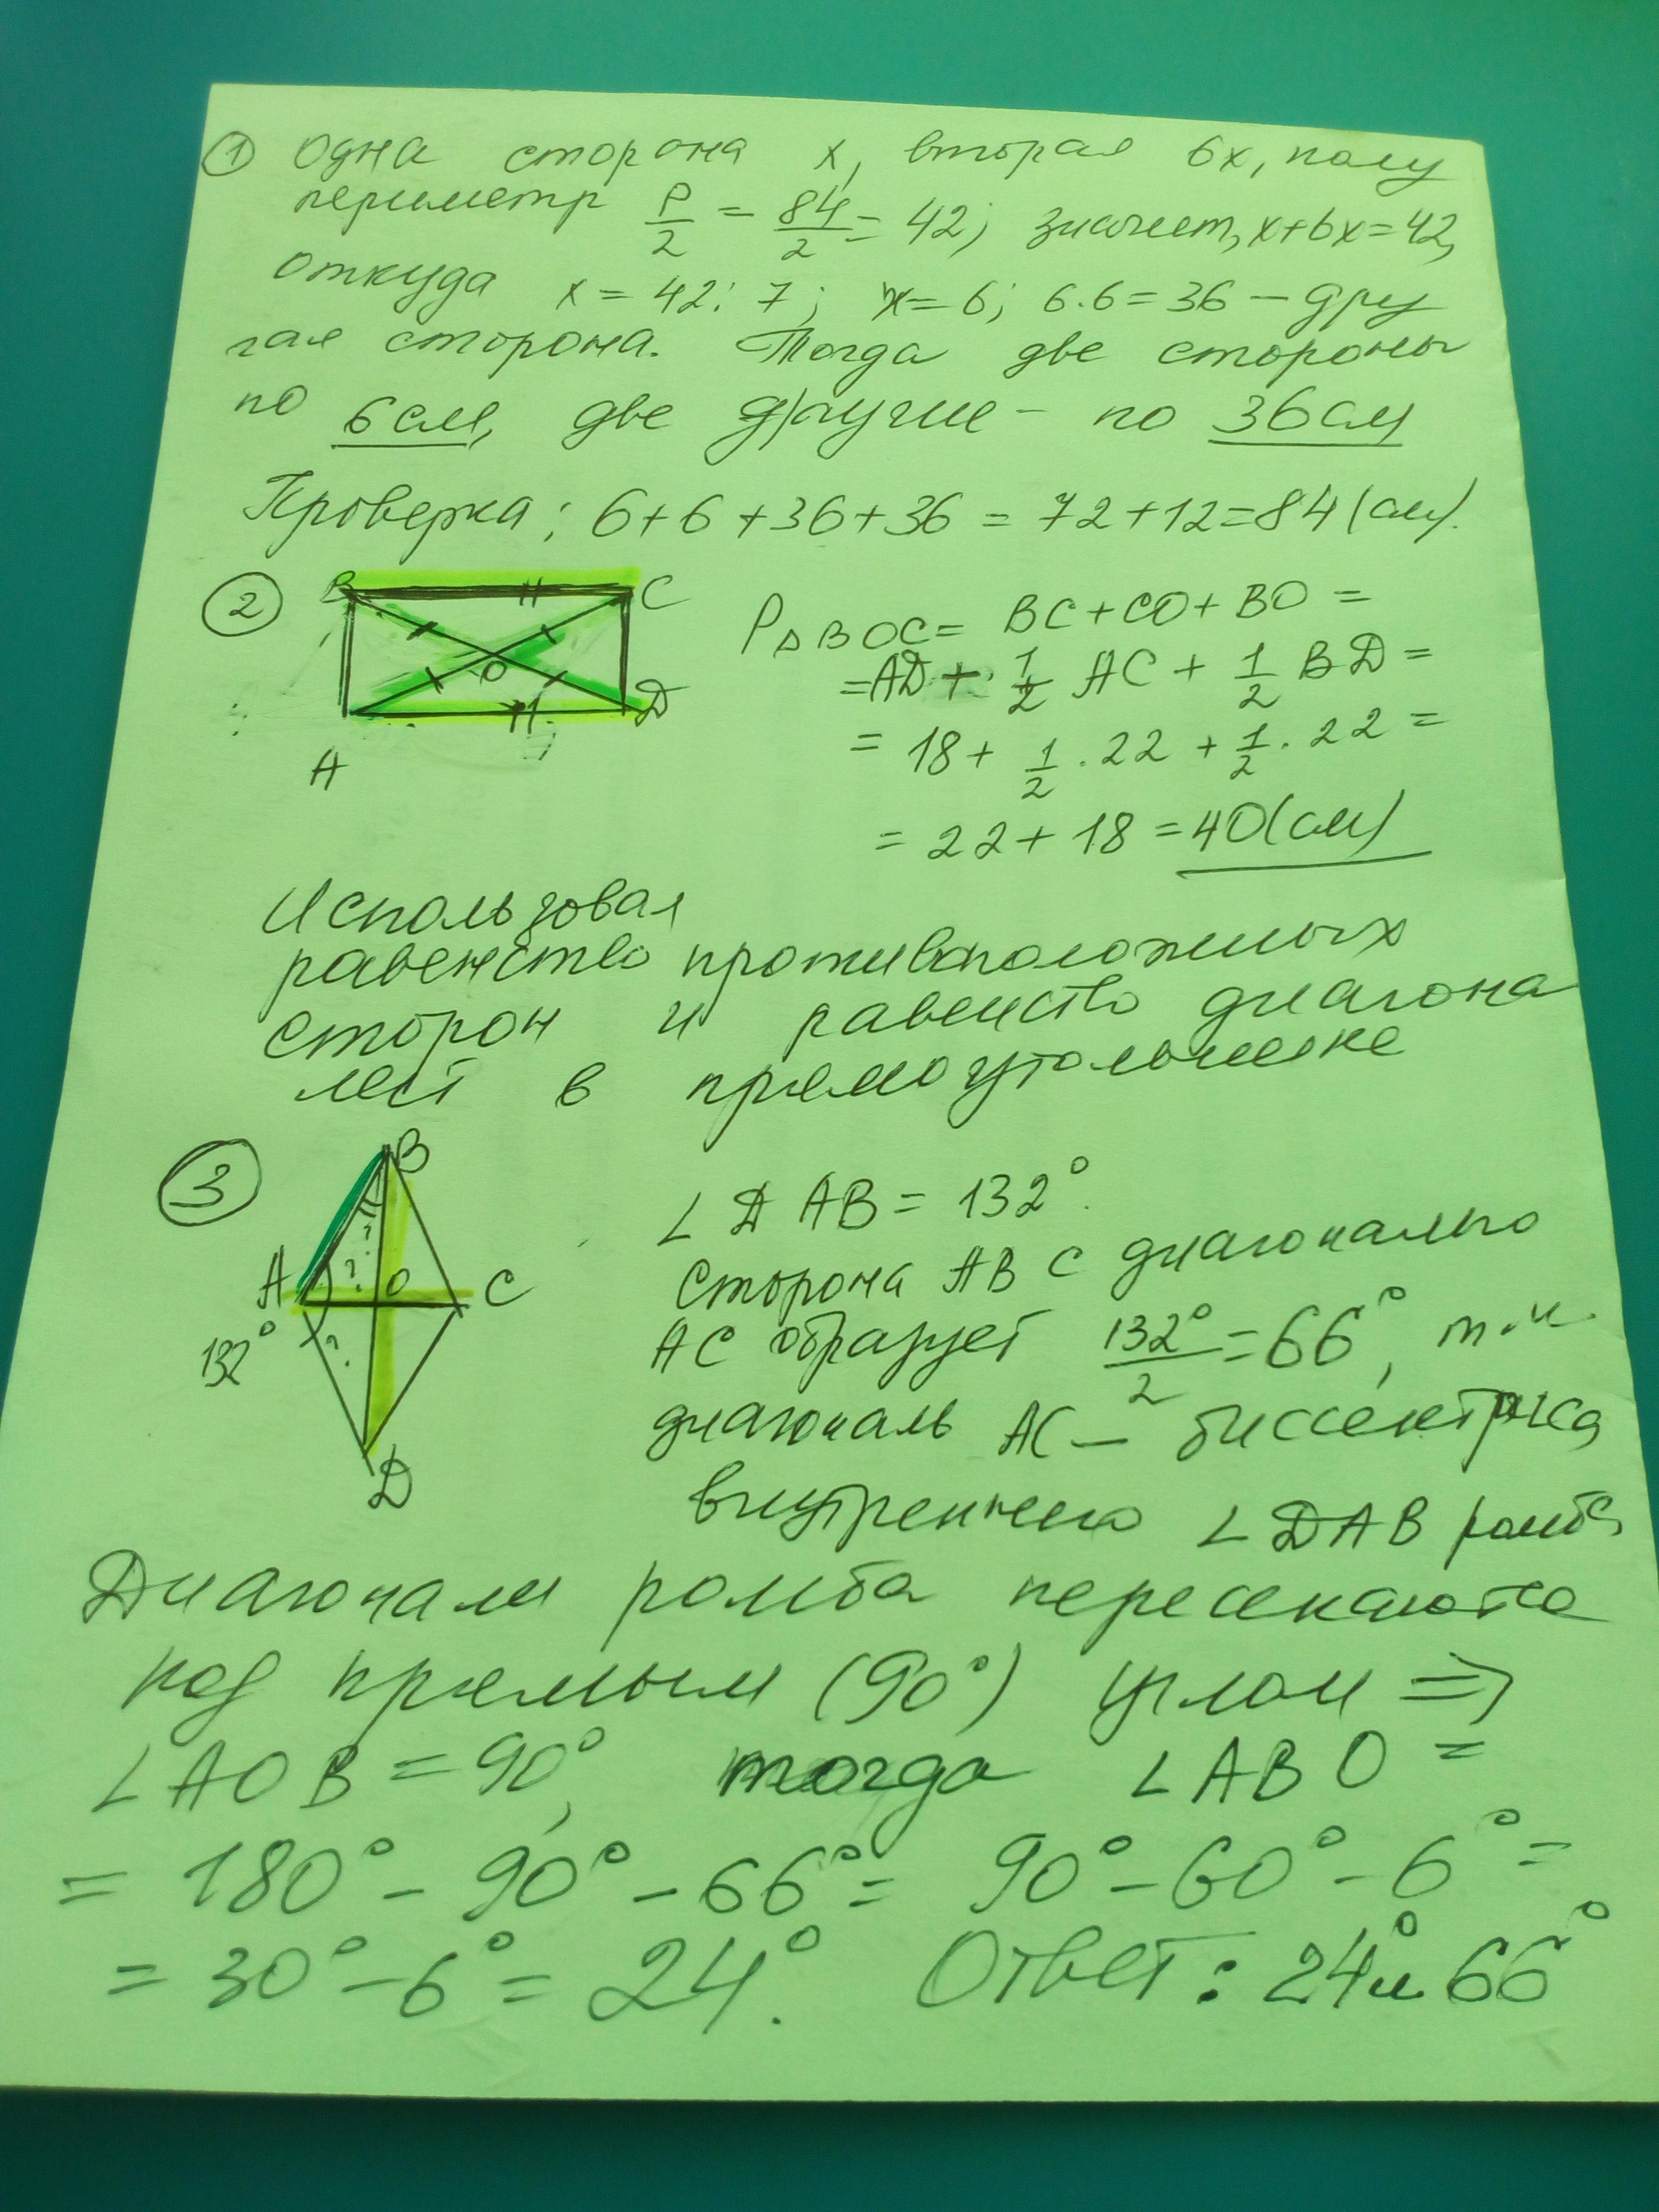 ① Одна сторона x, вторая 6x, полу
периметр P/2 = 84/2 = 42; значит, x+6x=42,
откуда x = 42:7; x=6; 6·6=36 – дру
гая сторона. Тогда две стороны
по 6 см, две другие – по 36 см
Проверка: 6+6+36+36 = 72+12=84 (см).
②
B
C
O
D
A
P△BOC= BC+CO+BO =
=AD + 1/2 AC + 1/2 BD =
= 18+ 1/2 · 22 + 1/2 · 22 =
= 22+18 = 40(см)
Использовал
равенство противоположных
сторон и равенство диагона
лей в прямоугольнике
③
B
?
A
?
O
C
132°
?
D
∠DAB = 132°.
Сторона AB с диагональю
AC образует 132°/2 = 66°, т.к
диагональ AC – биссектриса
внутреннего ∠DAB ромба
Диагонали ромба пересекаются
под прямым (90°) углом ⇒
∠AOB = 90°, тогда ∠ABO =
= 180° – 90° – 66° = 90° – 60° – 6° =
= 30° – 6° = 24°. Ответ: 24° и 66°